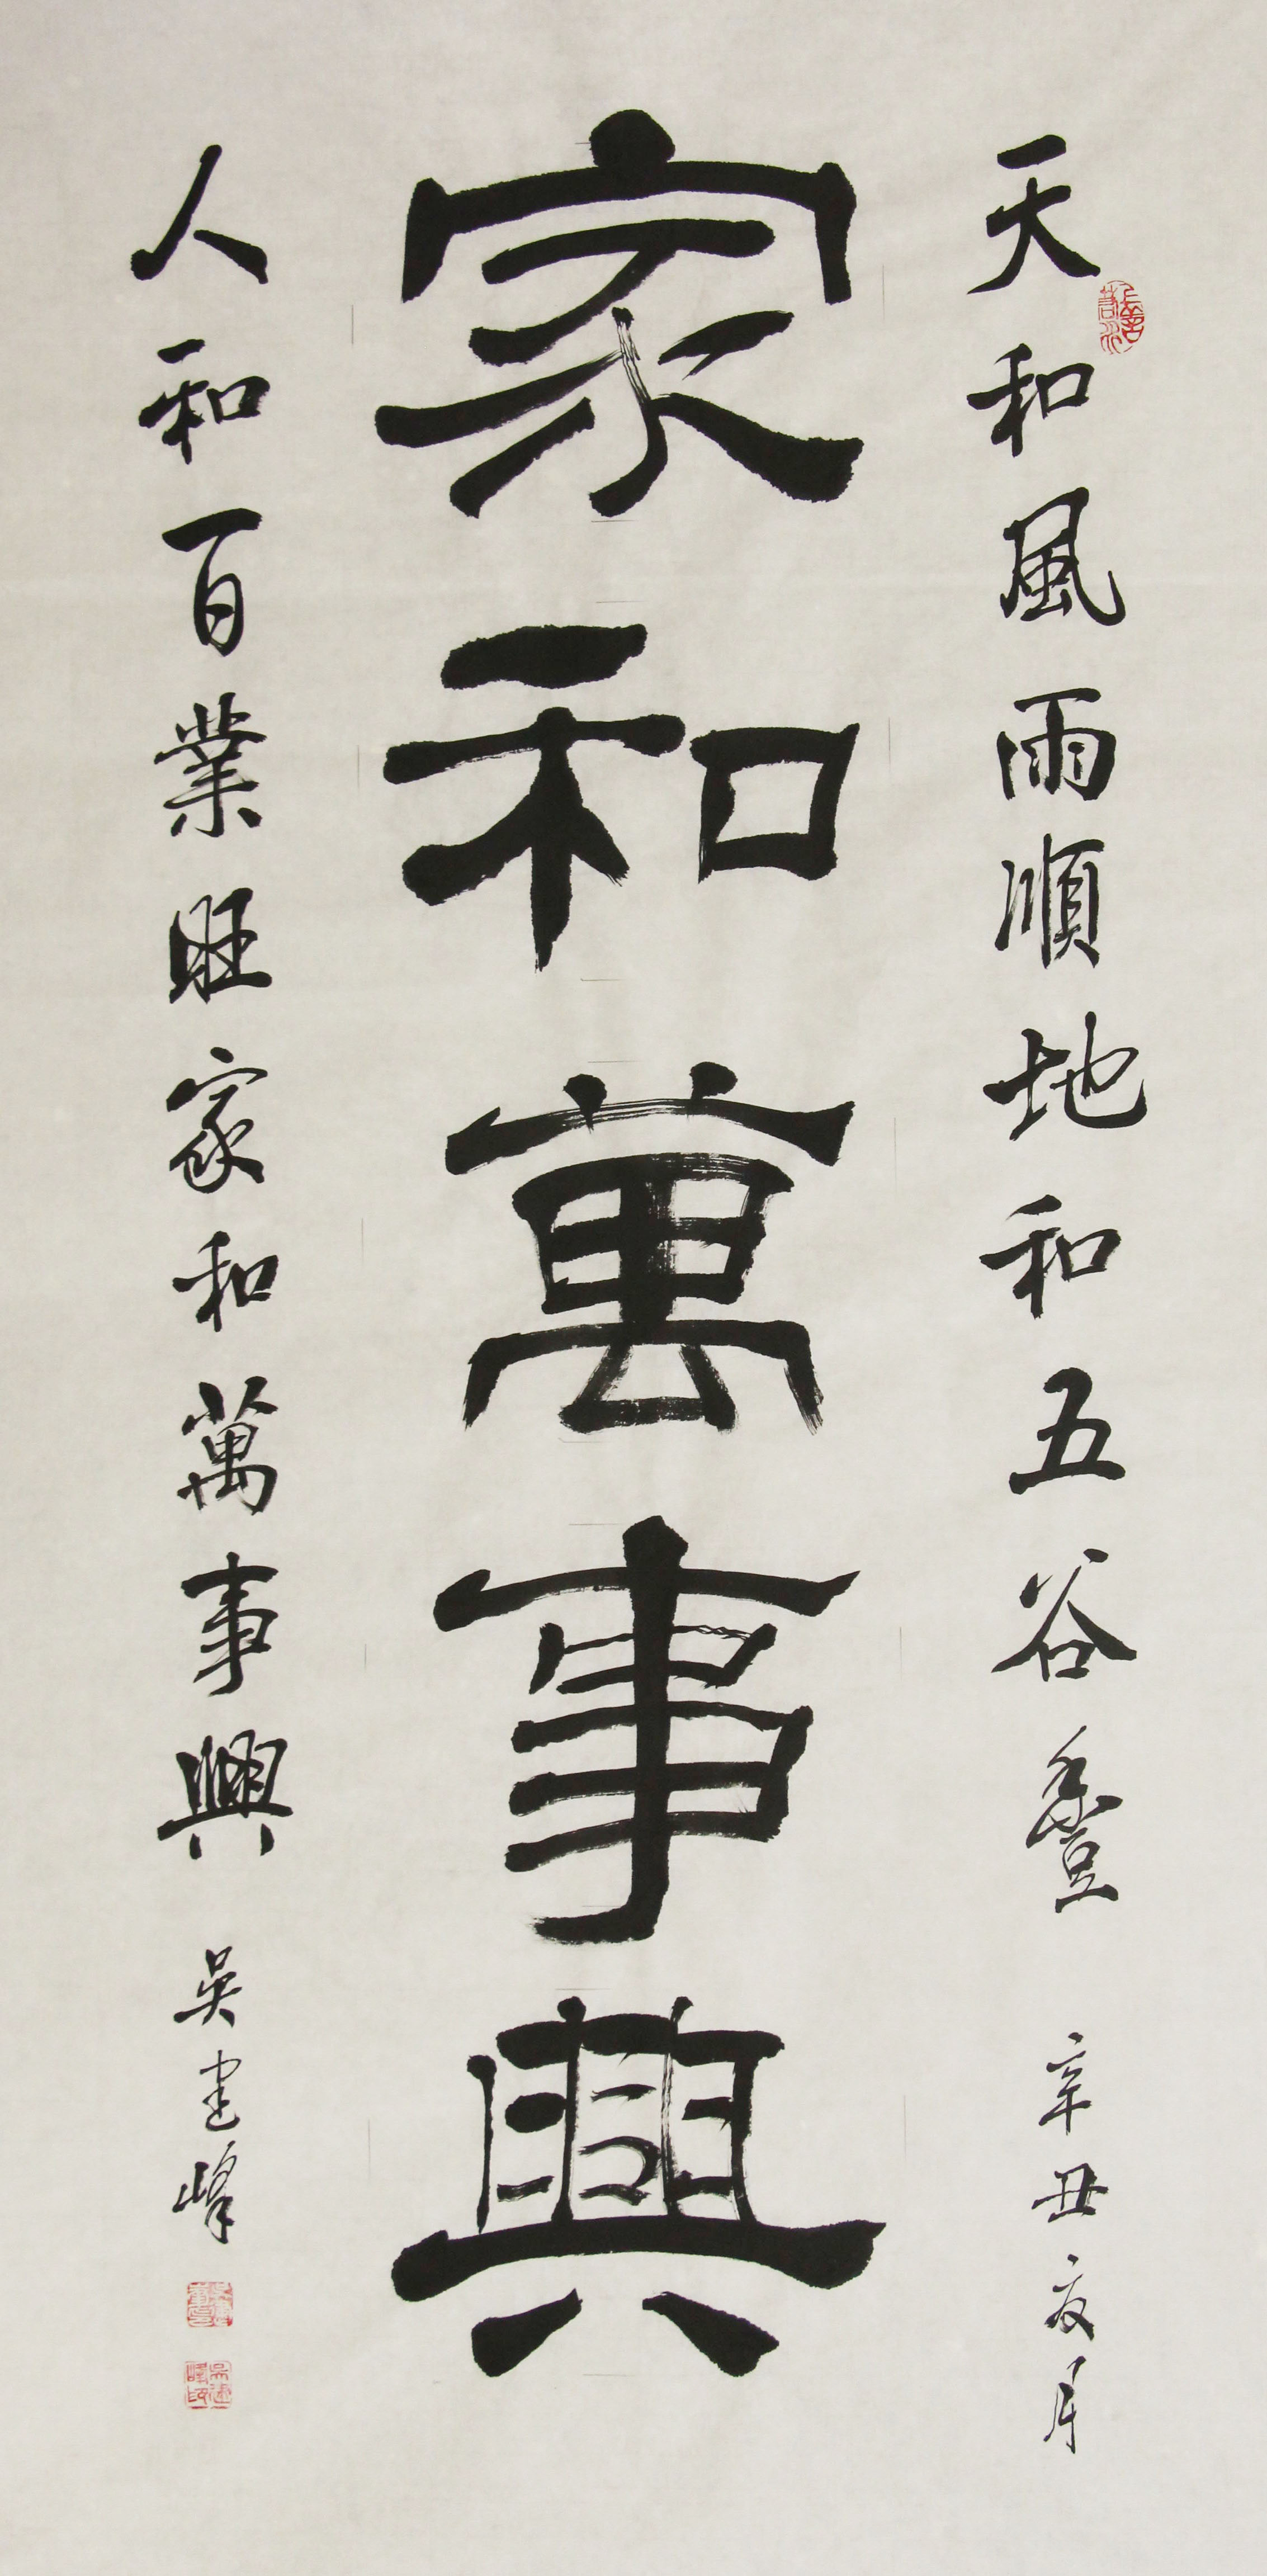 天和風雨順地和五谷豊 辛丑夏月
家和萬事興
人和百業旺家和萬事興 吴建峰